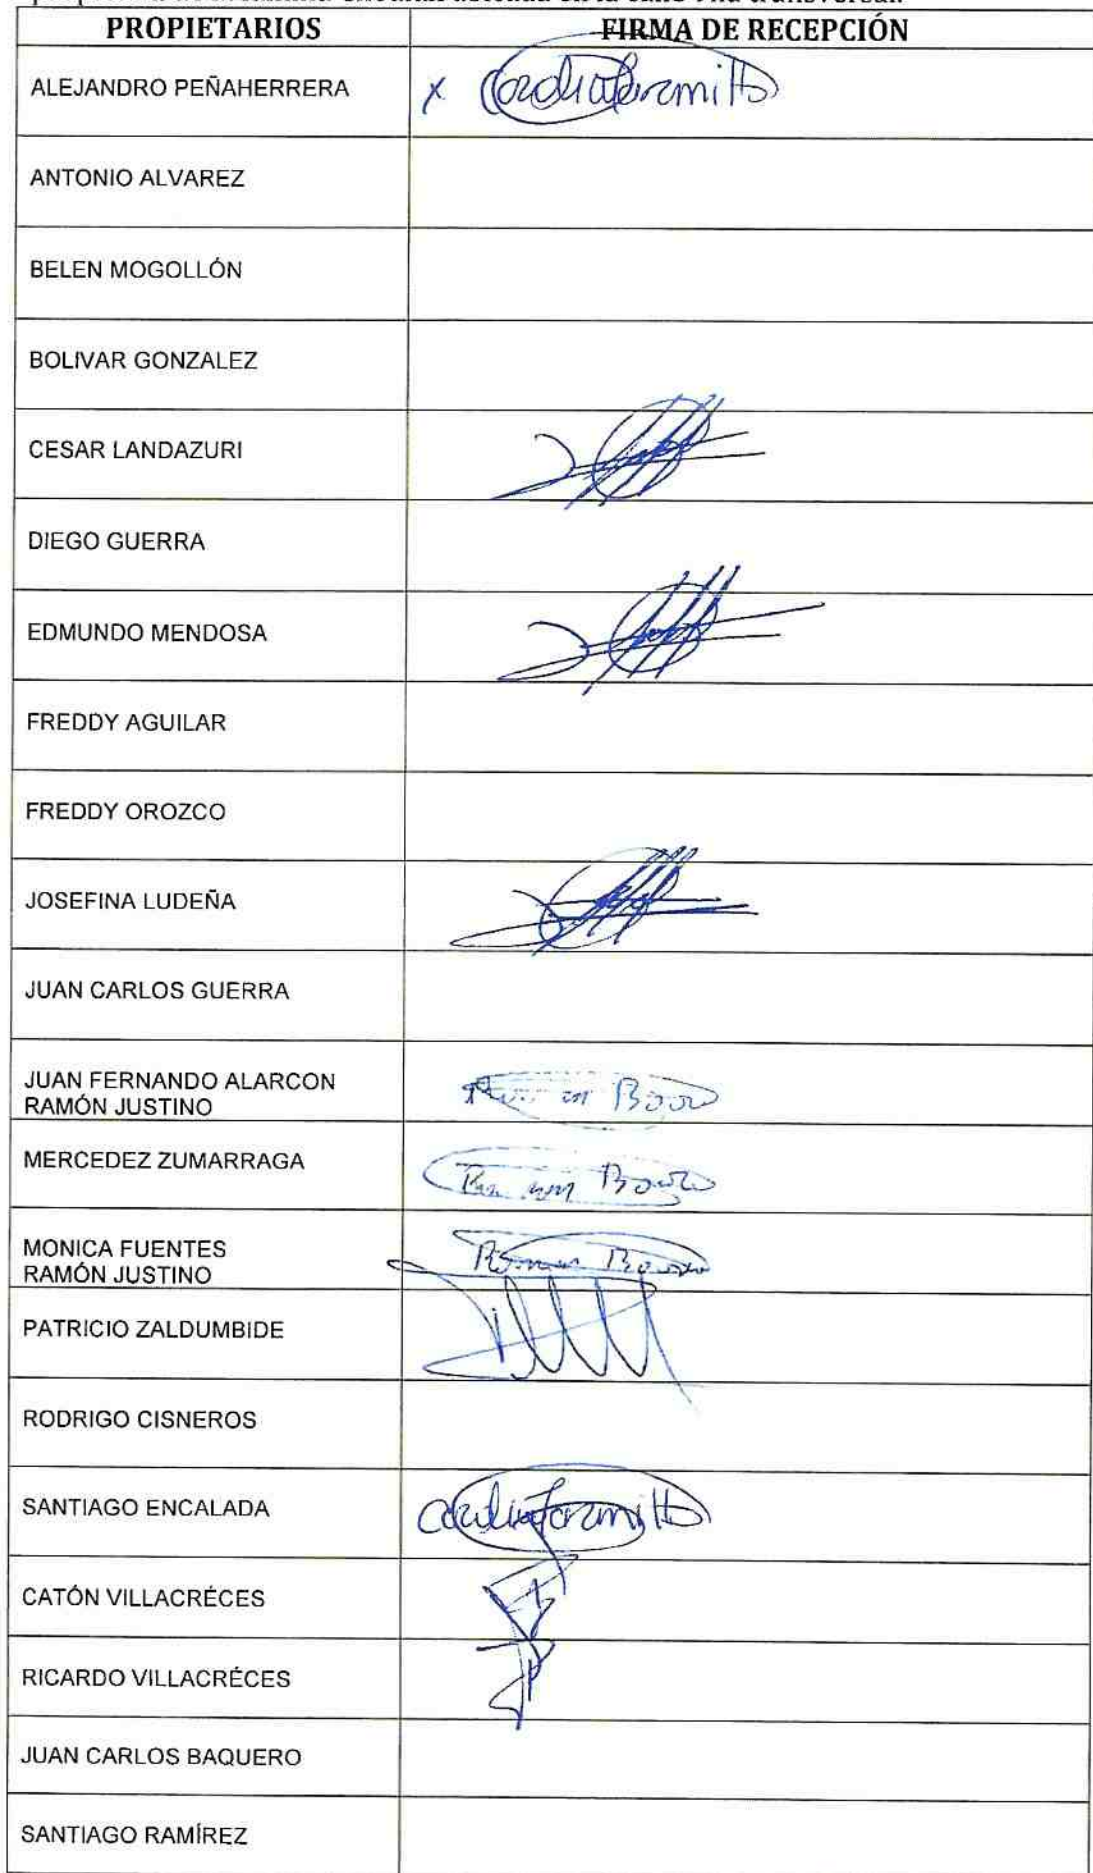 PROPIETARIOS FIRMA DE RECEPCIÓN
ALEJANDRO PEÑAHERRERA x
ANTONIO ALVAREZ
BELEN MOGOLLÓN
BOLIVAR GONZALEZ
CESAR LANDAZURI
DIEGO GUERRA
EDMUNDO MENDOSA
FREDDY AGUILAR
FREDDY OROZCO
JOSEFINA LUDEÑA
JUAN CARLOS GUERRA
JUAN FERNANDO ALARCON
RAMÓN JUSTINO
MERCEDEZ ZUMARRAGA
MONICA FUENTES
RAMÓN JUSTINO
PATRICIO ZALDUMBIDE
RODRIGO CISNEROS
SANTIAGO ENCALADA
CATÓN VILLACRÉCES
RICARDO VILLACRÉCES
JUAN CARLOS BAQUERO
SANTIAGO RAMÍREZ